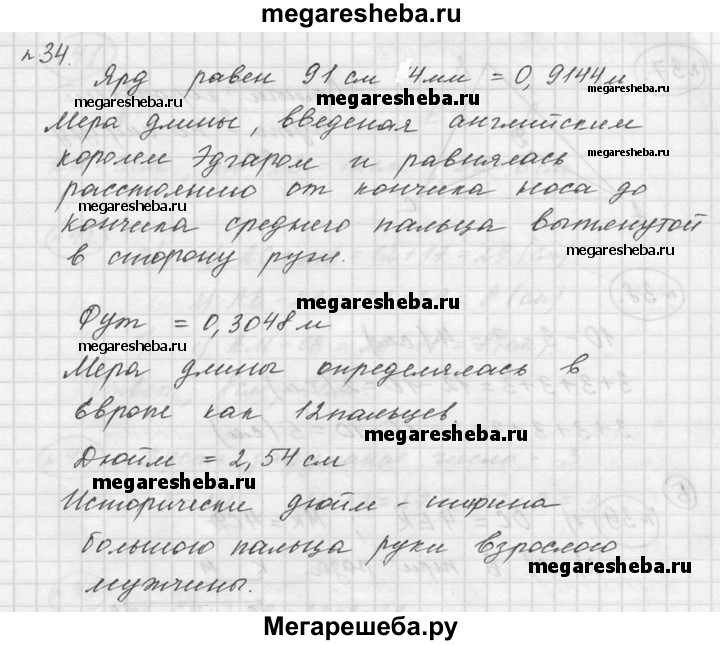 megaresheba.ru
n 34.
Ярд равен 91 см 4мм = 0,9144м
megaresheba.ru
megaresheba.ru
Мера длины, введеная английским
королем Эдгаром и равнялась
megaresheba.ru
расстоянию от кончика носа до
megaresheba.ru
кончика среднего пальца вытянутой
в сторону руки.
megaresheba.ru
megaresheba.ru
Фут = 0,3048 м
megaresheba.ru
Мера длины определялась в
Европе как 12 пальцев
megaresheba.ru
Дюйм = 2,54 см
megaresheba.ru
Исторически дюйм - ширина
большого пальца руки взрослого
megaresheba.ru
мужчины.
megaresheba.ru
Мегарешеба.ру